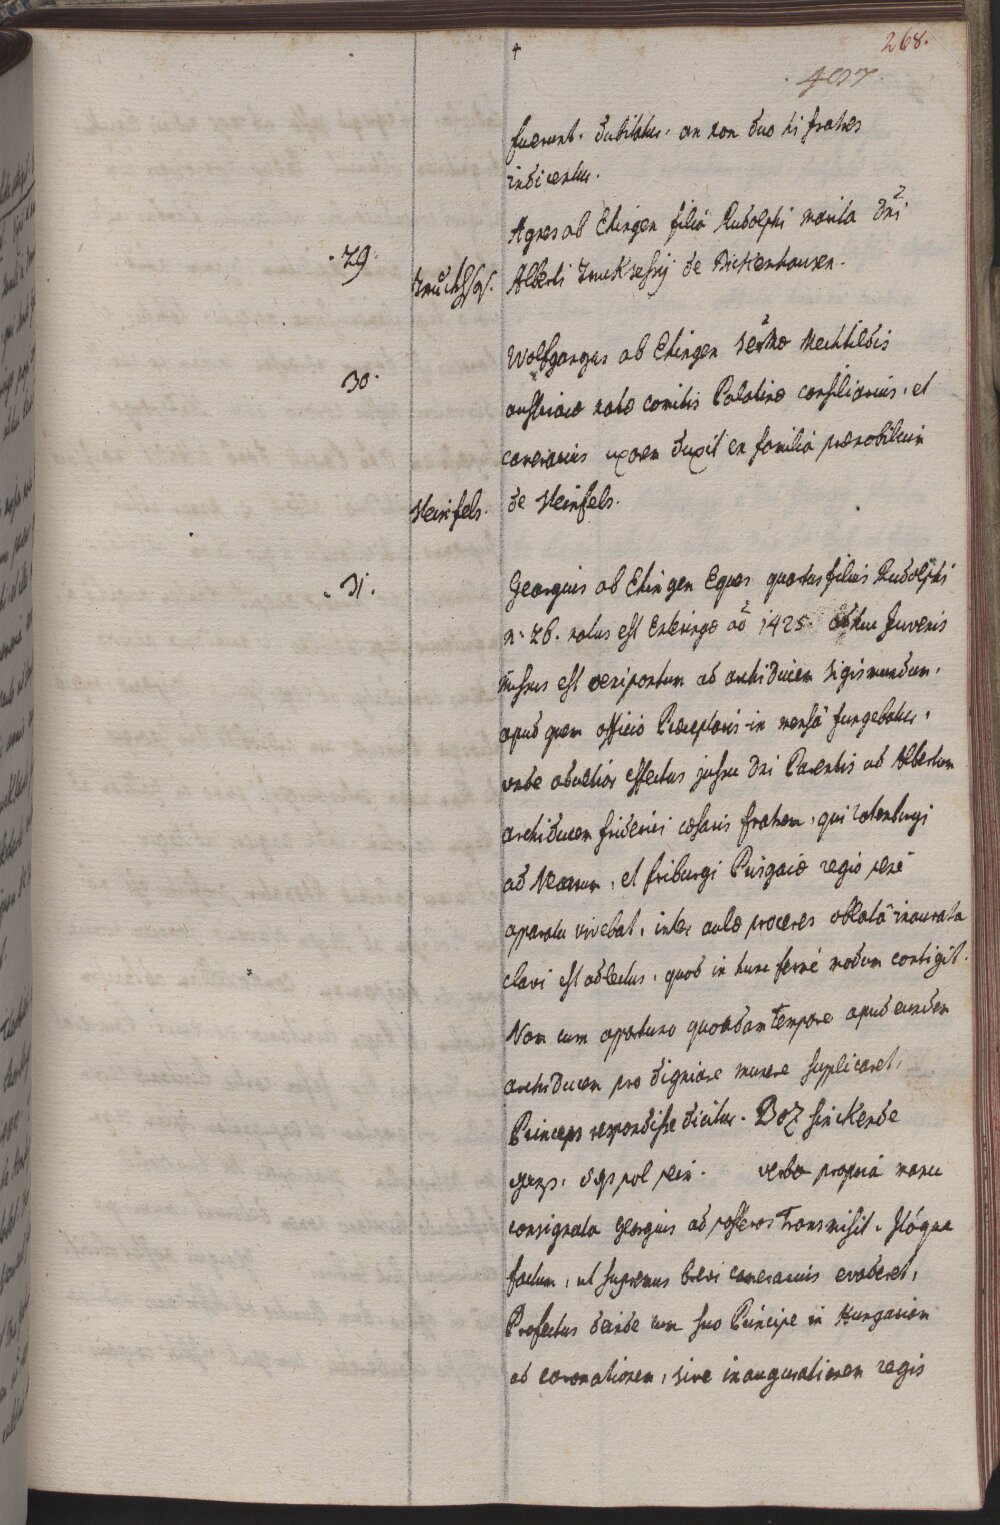 268.
407
fuerunt. dubitatur. an non duo hi fratres
indicentur.
Agnes ab Ehingen filia Rudolphi marita Dni
29.
Truchses. Alberti Truksessij de Bichenhausen.
Wolfgangus ab Ehingen Sermæ Mechtildis
30.
austriacæ natæ comitis Palatinæ consiliarius, et
camerarius uxorem duxit ex familia prænobilium
Neinfels. de Neinfels.
31. Georgius ab Ehingen Eques quartus filius Rudolphi
n. 26. natus est aō 1425. adhuc Juvenis
missus est oenipontum ad archiducem Sigismundum.
apud quem officio Præceptoris in mensâ fungebatur,
unde abductior effectus jussu Dni Parentis ad Albertum
archiducem friderici cæsaris fratrem, qui rotenburgi
ad Necarum, et friburgi Brisgaiæ regio penè
apparatu vivebat, inter aulæ proceres oblatâ inaurata
clavi est adlectus, quod in hunc fermè modum contigit.
Nam cum opportuno quondam Tempore apud eundem
archiducem pro digniore munere supplicaret,
Princeps respondisse dicitur. Boz sinckende
gans, das sol sein. verba propriâ manu
consignata georgius ad posteros Transmisit. Itáque
factum, ut supremus brevi camerarius evaderet,
Profectus deinde cum suo Principe in Hungariam
ad coronationem, sive inaugurationem regis